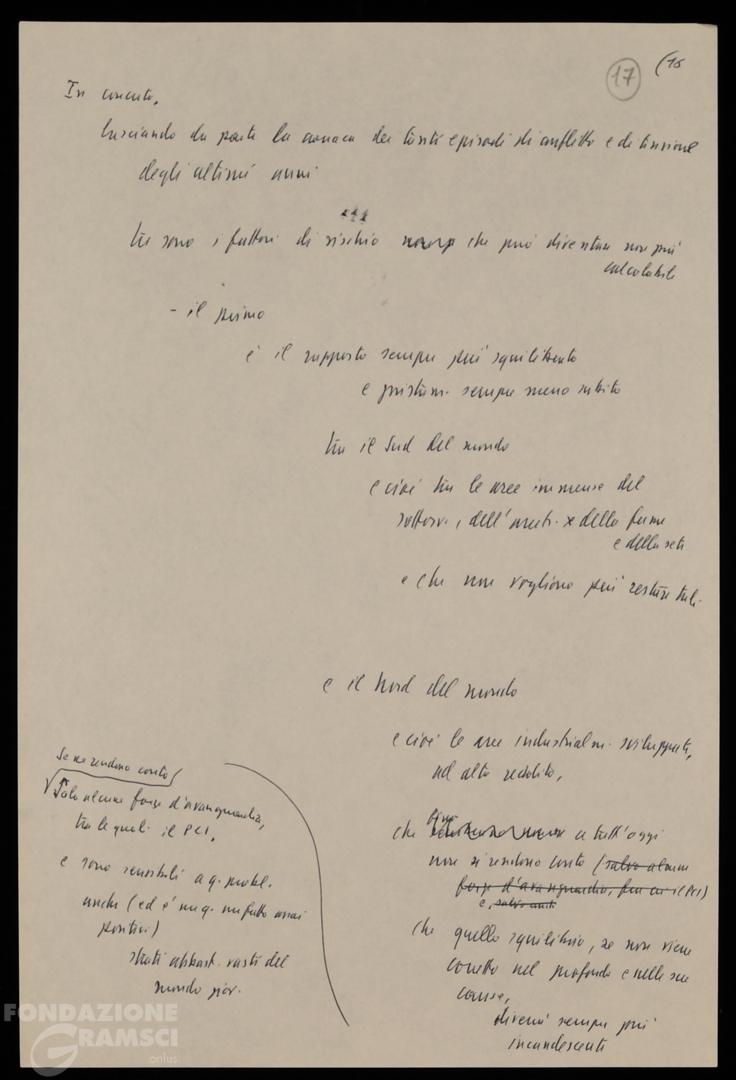 17 (16
In concreto,
lasciando da parte la cronaca dei tanti episodi di conflitto e di tensione
degli ultimi anni
tre sono i fattori di rischio che può diventare non più
calcolabile
- il primo
è il rapporto sempre più squilibrato
e giustam. sempre meno subito
tra il Sud del mondo
e cioè tra le aree immense del
sottosv., dell'arretr. x della fame
e della sete
e che non vogliono più restare tali.
e il Nord del mondo
e cioè le aree industrialm. sviluppate,
ad alto reddito,
che fino a tutt'oggi
non si rendono conto (salvo alcune
forze d'avanguardia, fra cui il PCI)
e, salvo
che quello squilibrio, se non viene
corretto nel profondo e nelle sue
cause,
diverrà sempre più
incandescente
Se ne rendono conto
Solo alcune forze d'avanguardia,
tra le quali il PCI,
e sono sensibili a q. probl.
anche (ed è un fatto assai
positivo)
strati abbast. vasti del
mondo giov.
FONDAZIONE
GRAMSCI
onlus